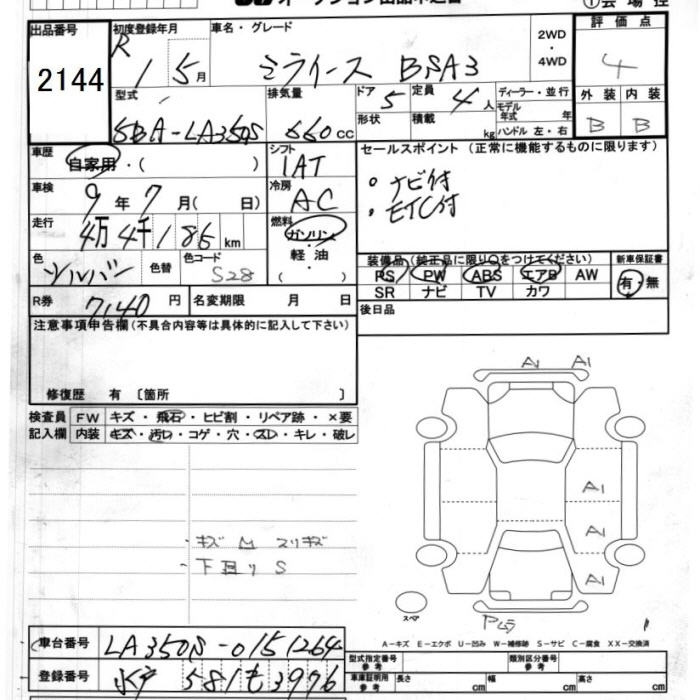 出品番号 2144
初度登録年月 R 1 5月
車名・グレード ミライース BSA3
2WD・4WD
評価点 4
型式 5BA-LA350S
排気量 660cc
ドア 5 形状
定員 4人 積載 kg
ディーラー・並行
モデル年式 年
ハンドル 左・右
外装 B 内装 B
車歴 自家用・( )
シフト 1AT
セールスポイント(正常に機能するものに限ります)
車検 9年7月( 日)
冷房 AC
ナビ付
ETC付
走行 4万4千186km
燃料 ガソリン・軽油 ( )
色 シルバー 色替 色コード S28
装備品(純正品に限り○をつけてください) 新車保証書
PS PW ABS エアB AW 有・無
SR ナビ TV カワ
R券 7140円 名変期限 月 日
後日品
注意事項申告欄(不具合内容等は具体的に記入して下さい)
修復歴 有〔箇所 〕
検査員 FW キズ・飛石・ヒビ割・リペア跡・×要
記入欄 内装 キズ・汚れ・コゲ・穴・スレ・キレ・破レ
A1 A1
A1
A1
A1
キズ M スリキズ
下回り S
スペア
A-キズ E-エクボ U-凹み W-補修跡 S-サビ C-腐食 XX-交換済
車台番号 LA350S-0151264
型式指定番号 参考 類別区分番号 参考
登録番号 水戸 581 も 3976
車庫証明用 参考 長さ cm 幅 cm 高さ cm